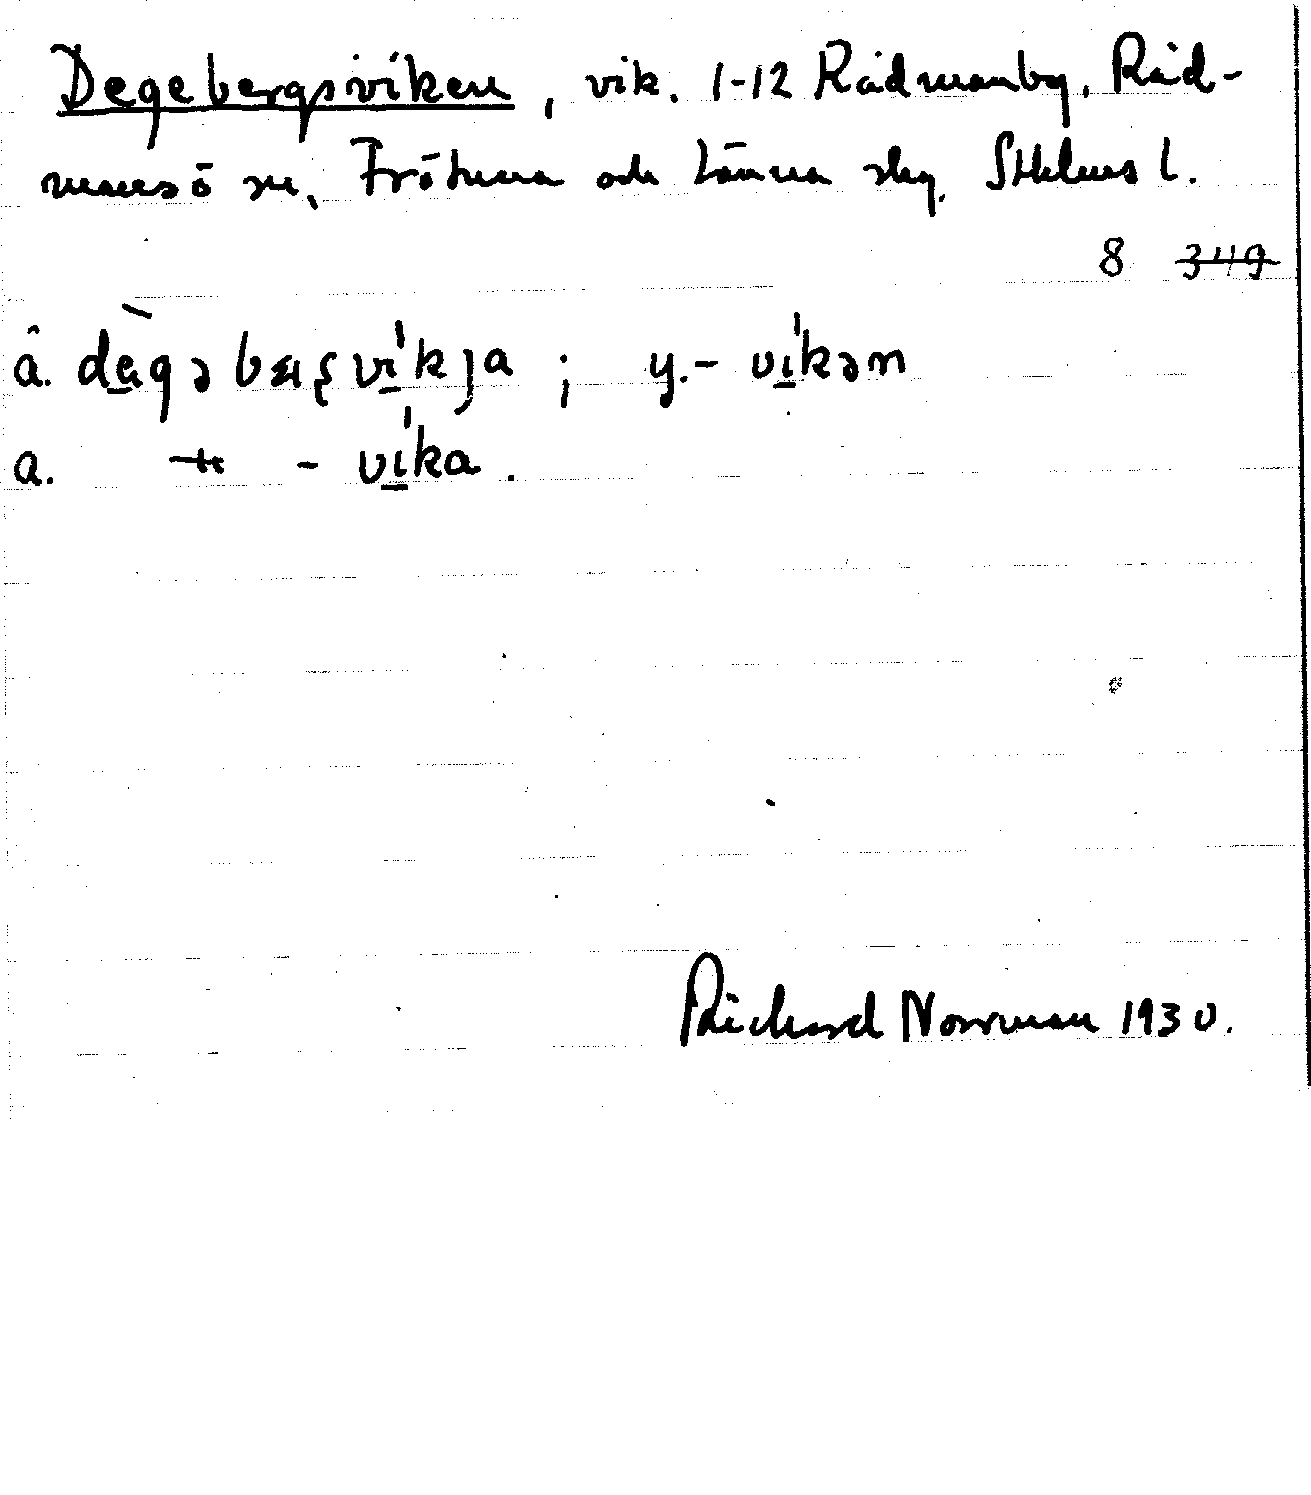 Degebergsviken, vik. 1-12 Rådmanby, Råd-
mansö sn, Frötuna och Länna skg. Sthlms l.
8 349
â. dègəbæʂvíkja ; y.- víkən
a. -"- - víka.
Richard Norrman 1930.